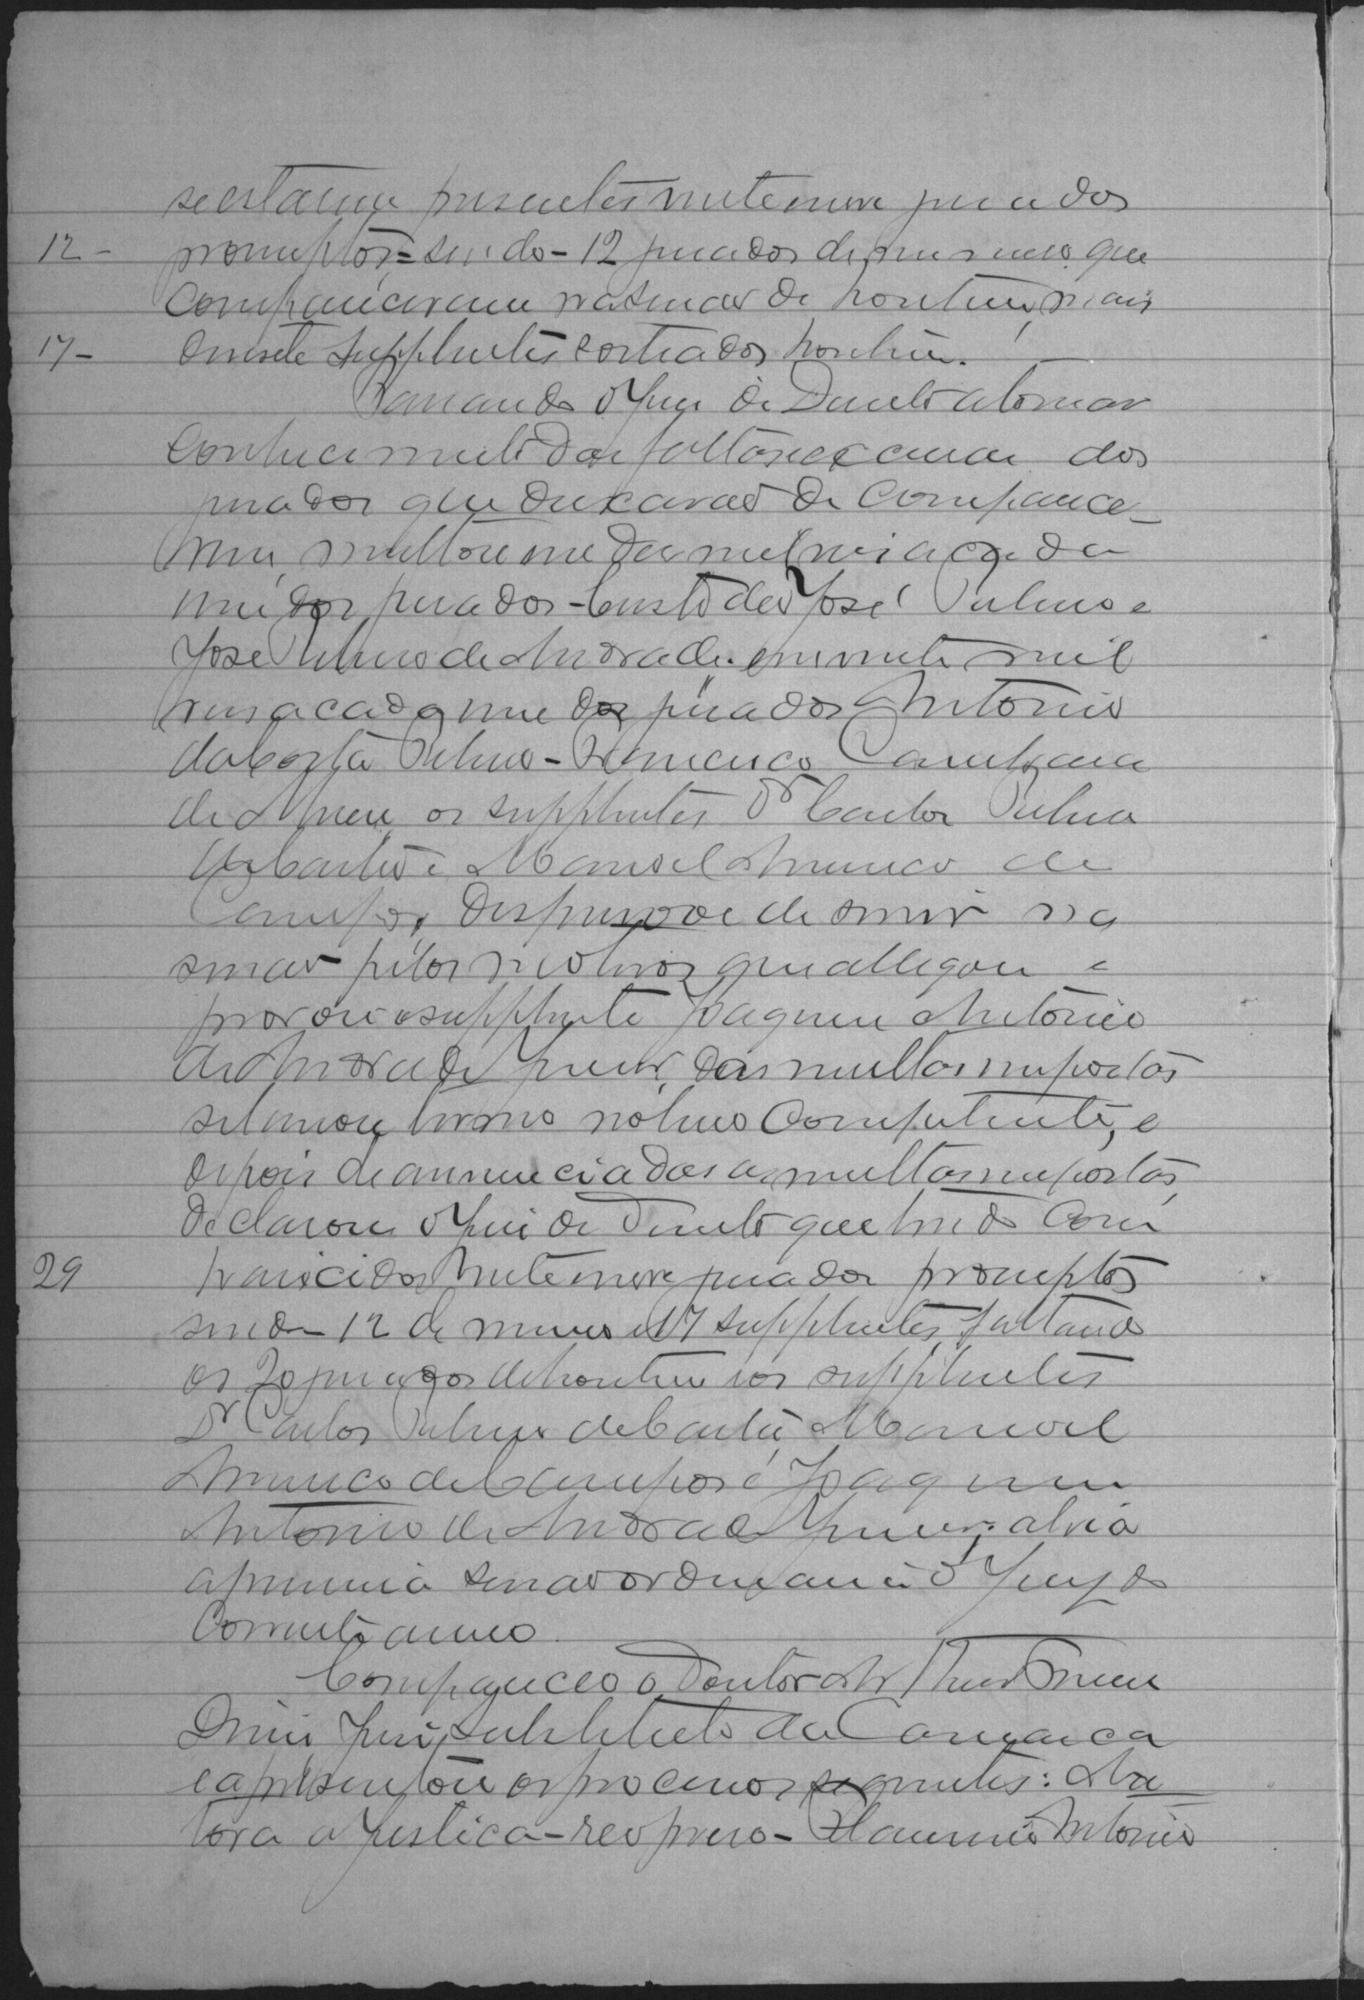 se estavam presentes vinte nove jurados
12 - promptos = sendo - 12 jurados de numero que
compareceram na sessão de hontem, mais
17 - desesete supplentes sorteados hontem.
Passando o Juiz de Direito a tomar
conhecimento das faltas e escusas dos
jurados que deixarão de comparece-
rem, multou em dez mil reis a cada
um dos jurados - Custodio José Ribeiro e
José Ribeiro de Andrade em vinte mil
reis a cada um dos jurados Antonio
da Costa Ribeiro - Francisco
de Abreu os supplentes Dr Carlos Ribeiro
de Castro e Manoel Americo de
Campos, dispensou de servir na
sessão pelos motivos que allegou e
provou o supplente Joaquim Antonio
de Andrade Junior, das multas impostas
se lavrou termo no livro competente, e
depois de annunciadas as multas impostas
declarou o Juiz de Direito que tendo com
29 parecidos vinte nove jurados promptos
sendo 12 de numero e 17 supplentes, faltando
os jurados de hontem e os supplentes
Dr Carlos Ribeiro de Castro, Manoel
Americo de Campos e Joaquim
Antonio de Andrade Junior, abria
a primeira sessão ordinaria do Jury do
corrente anno.
Compareceo o Doutor Arthur
Diniz Juiz substituto da Comarca
e apresentou os processos seguintes: Au
tora a Justiça - reo preso - Antonio